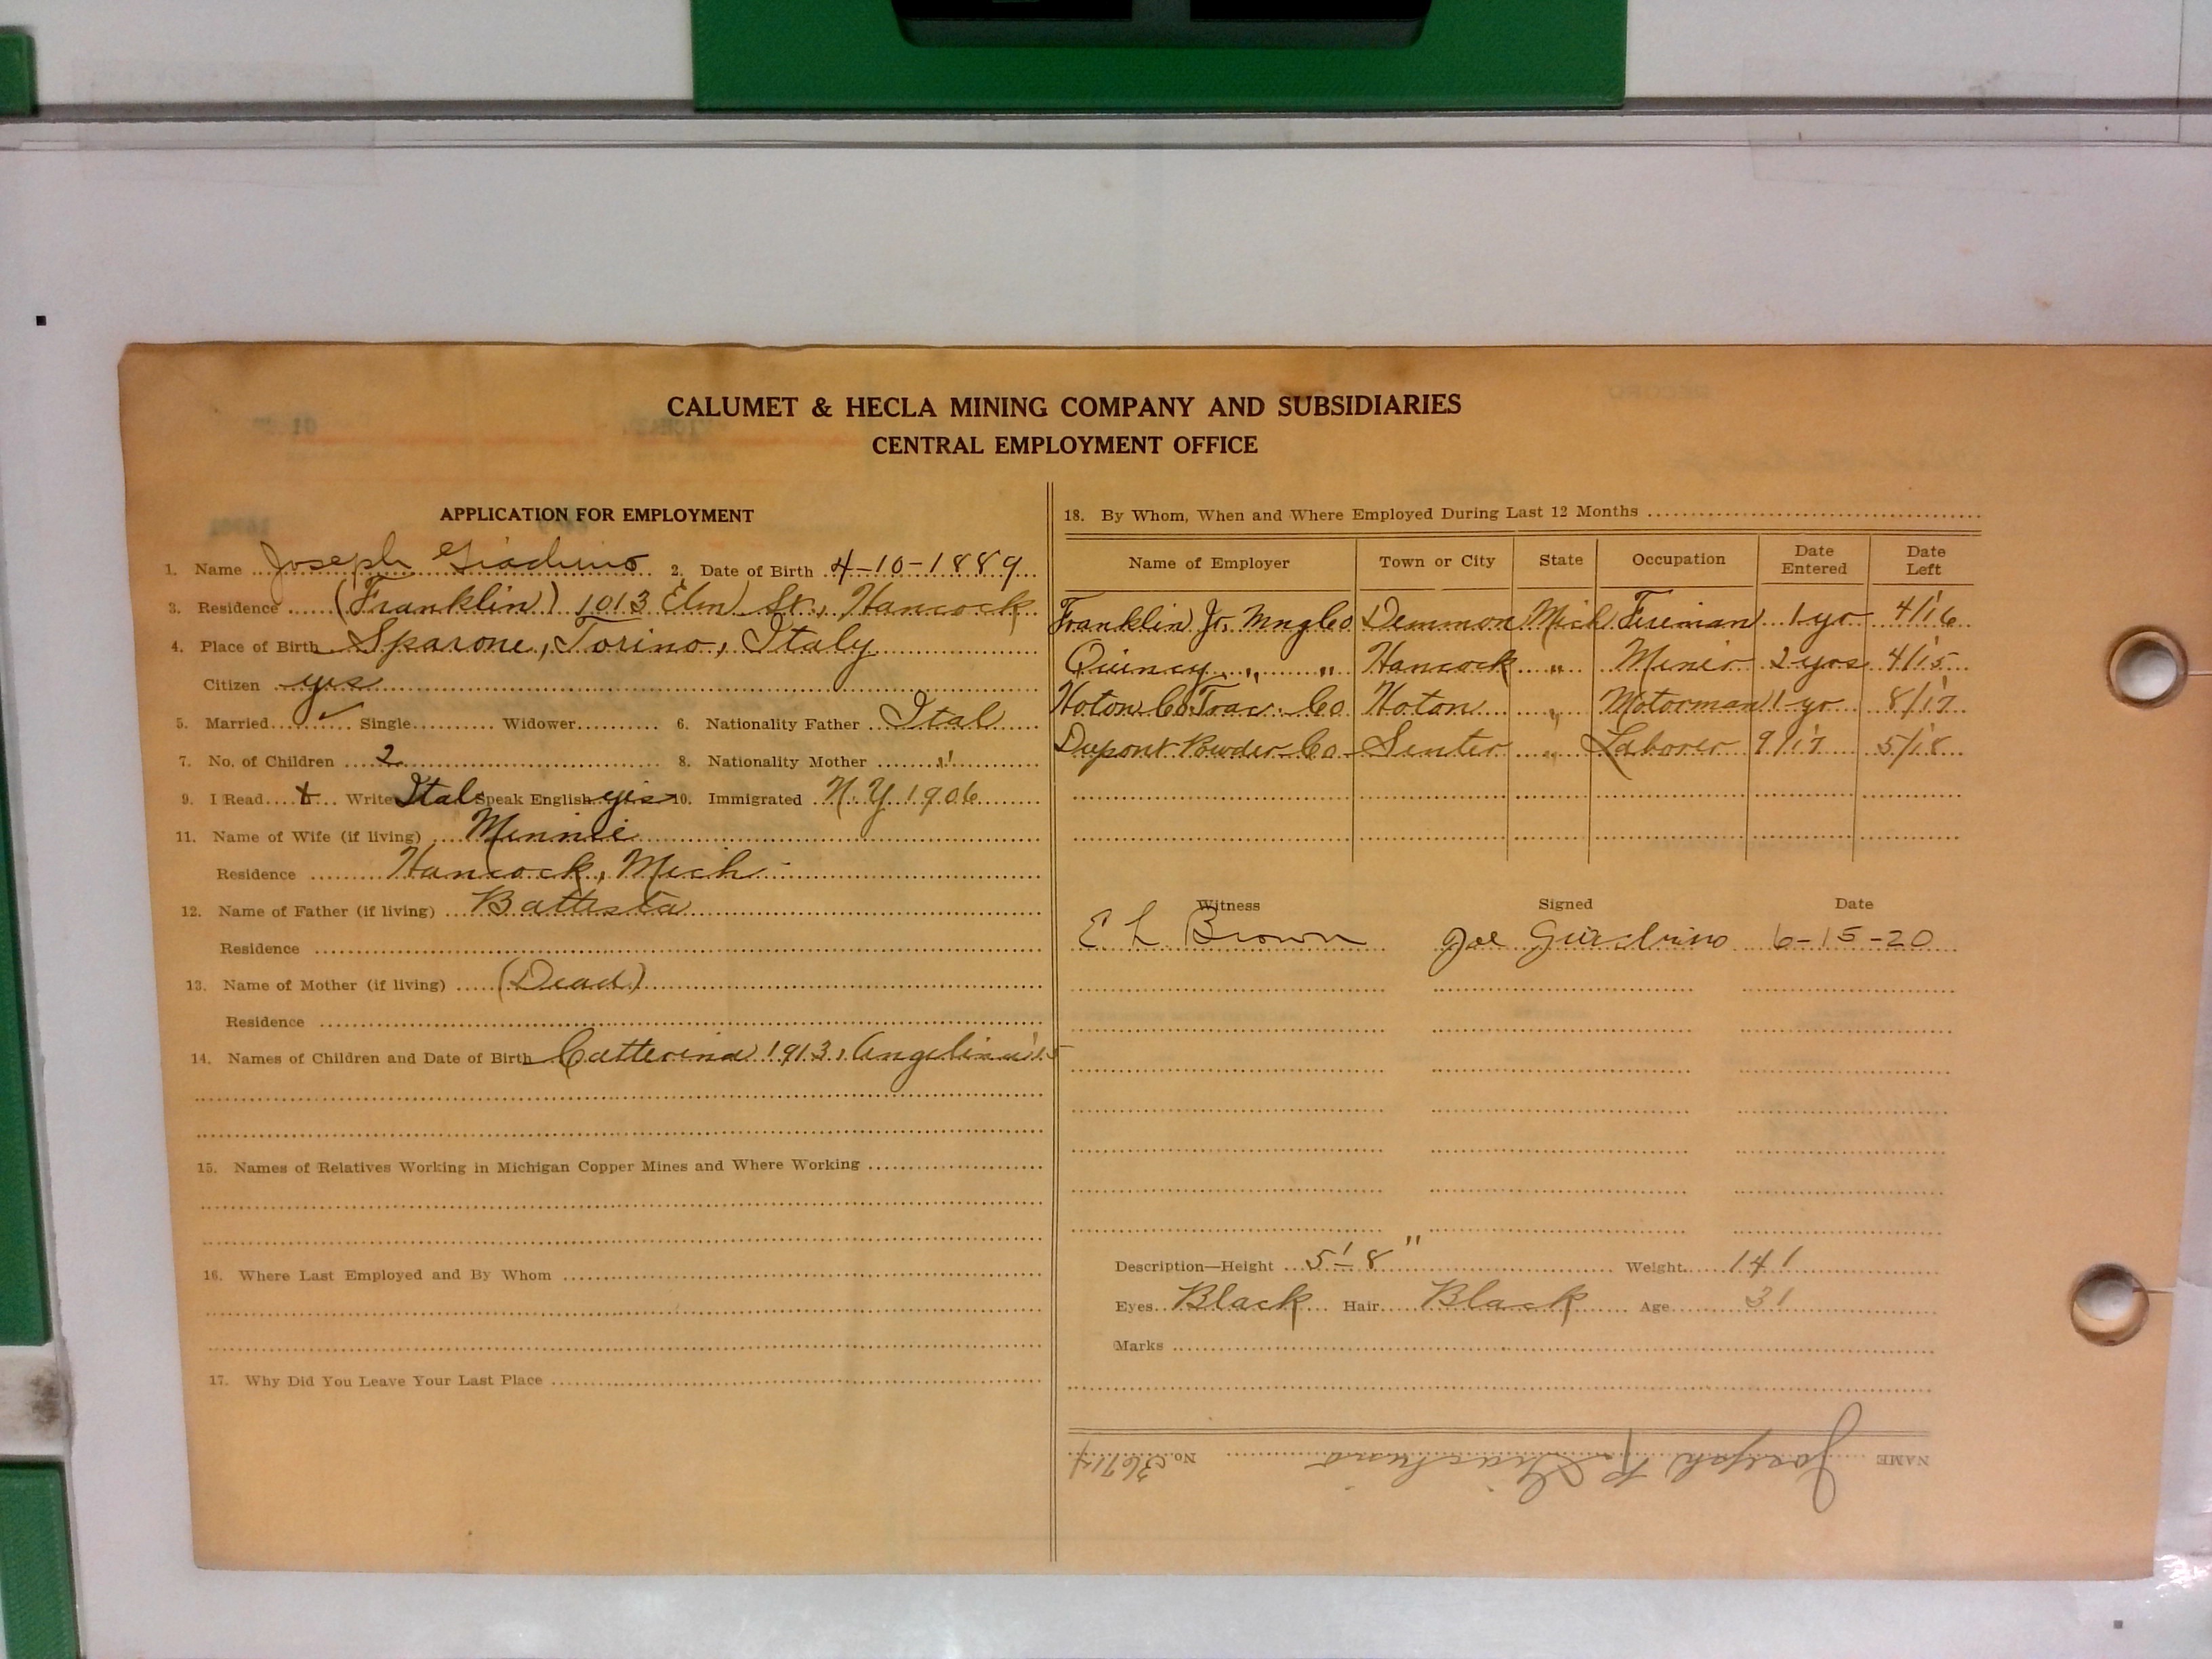 CALUMET & HECLA MINING COMPANY AND SUBSIDIARIES
CENTRAL EMPLOYMENT OFFICE
APPLICATION FOR EMPLOYMENT
1. Name Joseph Giachino 2. Date of Birth 4-10-1889
3. Residence (Franklin) 1013 Elm St., Hancock
4. Place of Birth Sparone, Torino, Italy
Citizen yes
5. Married ✓ Single Widower 6. Nationality Father Ital
7. No. of Children 2 8. Nationality Mother "
9. I Read + Write Ital Speak English yes 10. Immigrated N.Y. 1906
11. Name of Wife (if living) Minnie
Residence Hancock, Mich
12. Name of Father (if living) Battista
Residence
13. Name of Mother (if living) (Dead)
Residence
14. Names of Children and Date of Birth Catterina 1913, Angelina '15
15. Names of Relatives Working in Michigan Copper Mines and Where Working
16. Where Last Employed and By Whom
17. Why Did You Leave Your Last Place
18. By Whom, When and Where Employed During Last 12 Months
Name of Employer Town or City State Occupation Date Entered Date Left
Franklin Jr. Mng Co Demmon Mich Fireman 1 yr 4/'16
Quincy " " Hancock " Miner 2 yrs 4/'15
Hoton Co Trac. Co Hoton " Motorman 1 yr 8/'17
Dupont Powder Co Senter " Laborer 9/'17 5/'18
Witness Signed Date
E L Brown Joe Giachino 6-15-20
Description—Height 5'-8" Weight 141
Eyes Black Hair Black Age 31
Marks
NAME Joseph Giachino No.